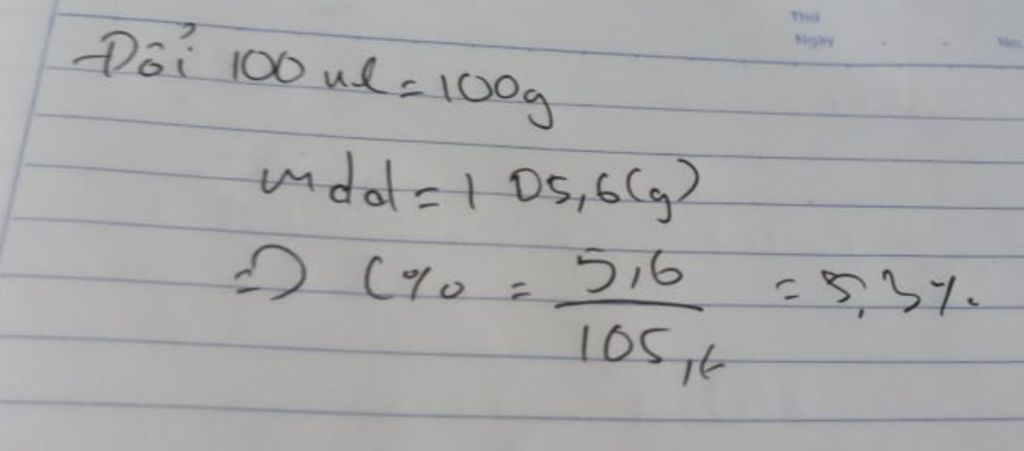 Thứ
Ngày No.
Đổi 100 ml = 100g
mdd = 105,6(g)
=> C% = 5,6 / 105,6 = 5,3%